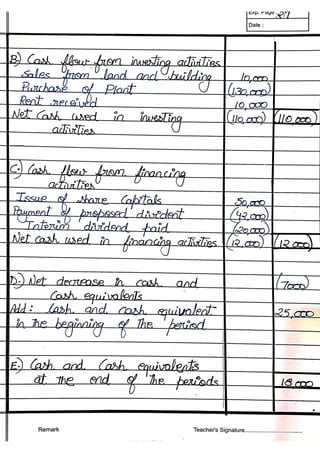 Exp. Page 29
Date :
B.) Cash flow from investing activities
Sales from land and building 10,000
Purchase of Plant (130,000)
Rent received 10,000
Net Cash used in investing (110,000) (110,000)
activities
C.) Cash flow from financing
activities
Issue of share Capitals 50,000
Payment of proposed divident (42,000)
Interim dividend paid (20,000)
Net cash used in financing activities (12,000) (12,000)
D.) Net decrease in cash and (7000)
Cash equivalents
Add: Cash and cash equivalent 25,000
in the beginning of the period
E.) Cash and Cash equivalents
at the end of the periods 18,000
Remark Teacher's Signature